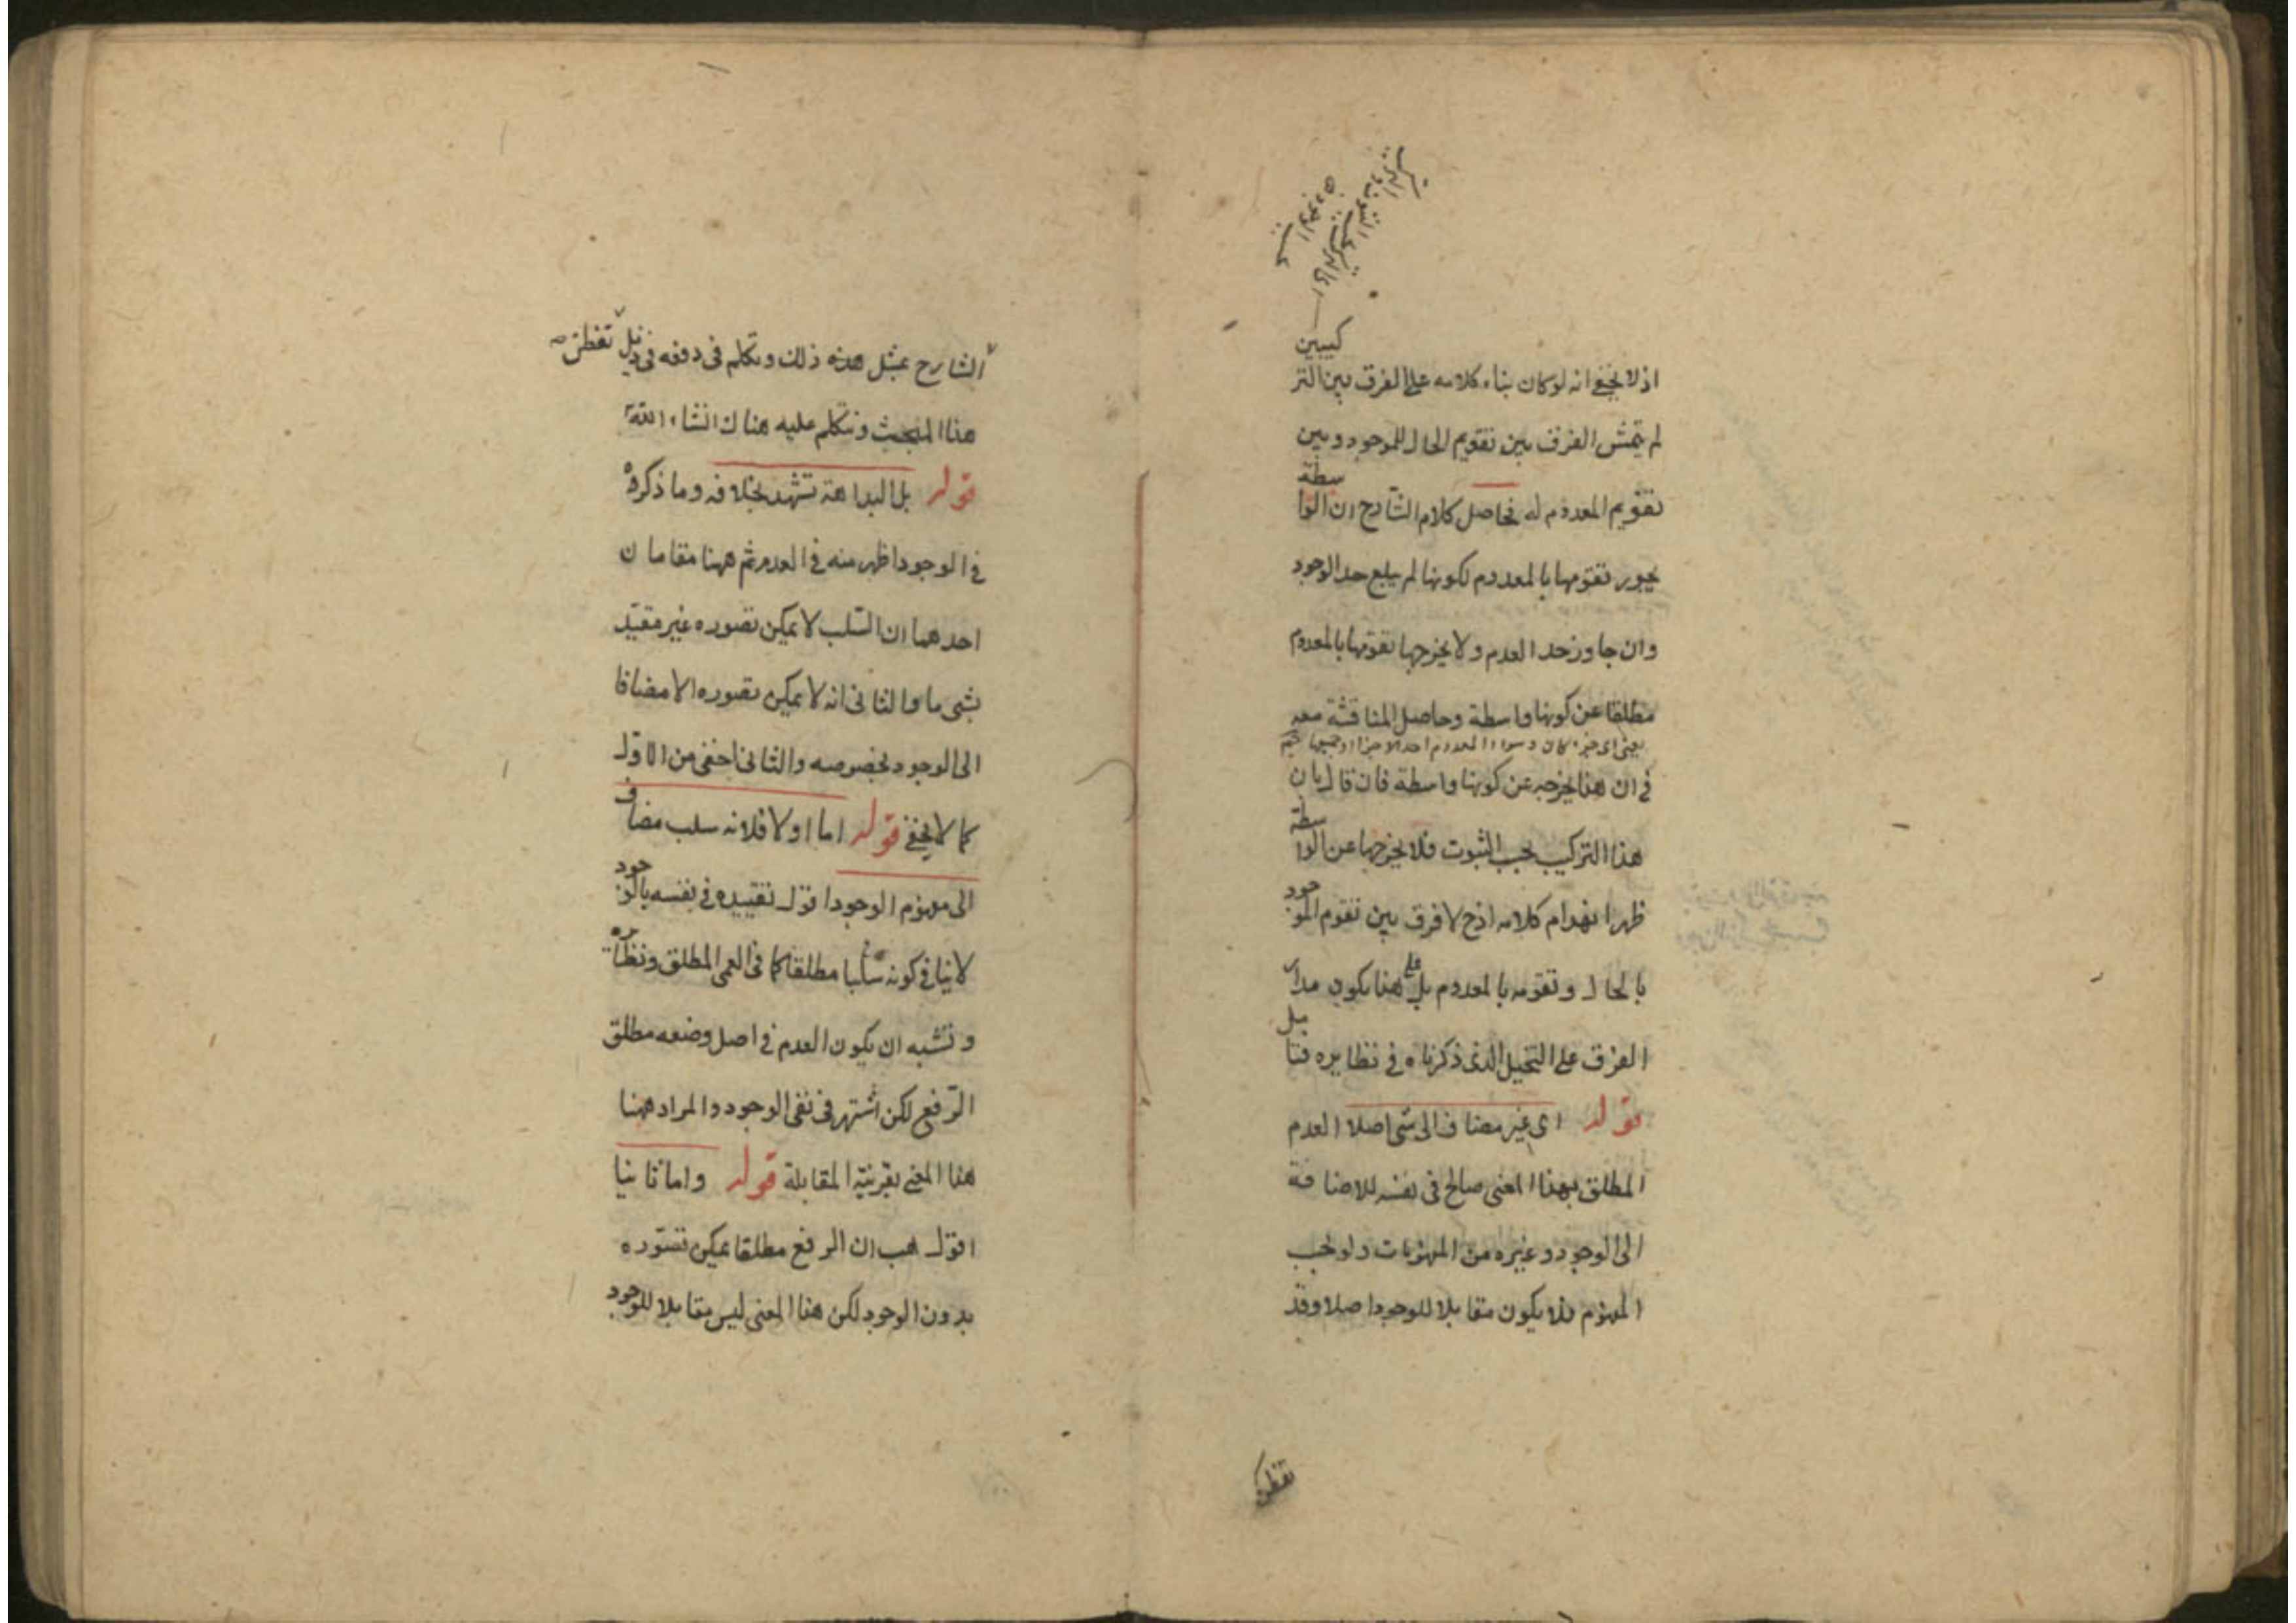 اذ لا يخفى انه لو كان بناء كلامه على الفرق بين التركيبين
لم يتمش الفرق بين تقويم الحال للموجود وبين
تقويم المعدوم له فحاصل كلام الشارح ان الواسطة
يجوز تقومها بالمعدوم لكونها لم يبلغ حد الوجود
وان جاوز حد العدم ولا يخرجها تقومها بالمعدوم
مطلقا عن كونها واسطة وحاصل المناقشة معه
في ان هذا يخرجه عن كونها واسطة فان قال بان
هذا التركيب بحسب الثبوت فلا يخرجها عن الواسطة
ظهر انهدام كلامه اذ ح لا فرق بين تقوم الموجود
بالحال وتقومه بالمعدوم بل على هذا يكون مدار
الفرق على التخيل الذى ذكرناه في نظايره فتأمل
قوله اى غير مضاف الى شى اصلا العدم
المطلق بهذا المعنى صالح فى نفسه للاضافة
الى الوجود وغيره من المفهومات ولو بحسب
المفهوم فلا يكون مقابلا للوجود اصلا وقد
تفطن
تفطن
الشارح بمثل هذه ذلك وتكلم فى دفعه فى ذيل
هذا المبحث ونتكلم عليه هناك انشاء الله
قوله بل البداهة تشهد بخلافه وما ذكره
في الوجود اظهر منه في العدم ثم ههنا مقامان
احدهما ان السلب لا يمكن تصوره غير مقيد
بشى ما والثانى انه لا يمكن تصوره الا مضافا
الى الوجود بخصوصه والثانى اخفى من الاول
كما لا يخفى قوله اما اولا فلانه سلب مضاف
الى مفهوم الوجود اقول تقييده في نفسه بالوجود
لا ينافي كونه سلبا مطلقا كما فى العمى المطلق ونظائره
ونشبه ان يكون العدم في اصل وضعه مطلق
الرفع لكن اشتهر فى نفى الوجود والمراد ههنا
هذا المعنى بقرينة المقابلة قوله واما ثانيا
اقول هب ان الرفع مطلقا يمكن تصوره
بدون الوجود لكن هذا المعنى ليس مقابلا للوجود